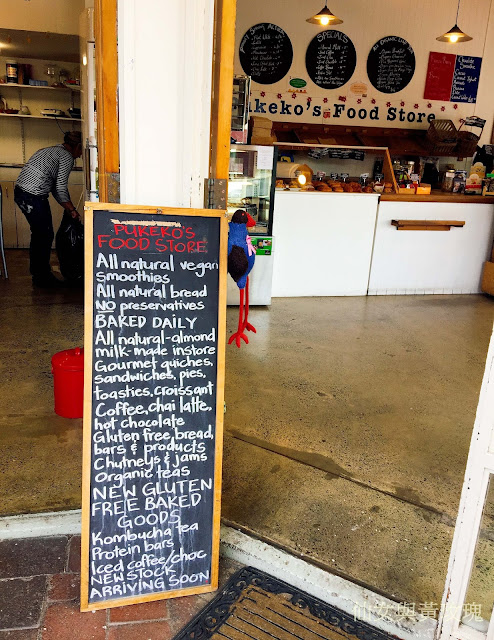 SPECIALS
ALL ORGANIC
ukeko's Food Store
PUKEKO'S
FOOD STORE
All natural vegan
smoothies
All natural bread
NO preservatives
BAKED DAILY
All natural-almond
milk-made instore
Gourmet quiches,
sandwiches, pies,
toasties, croissant
Coffee, chai latte,
hot chocolate
Gluten free, bread,
bars & products
Chutneys & jams
Organic teas
NEW GLUTEN
FREE BAKED
GOODS
Kombucha tea
Protein bars
Iced coffee/choc
NEW STOCK
ARRIVING SOON
仙女與黃玫瑰